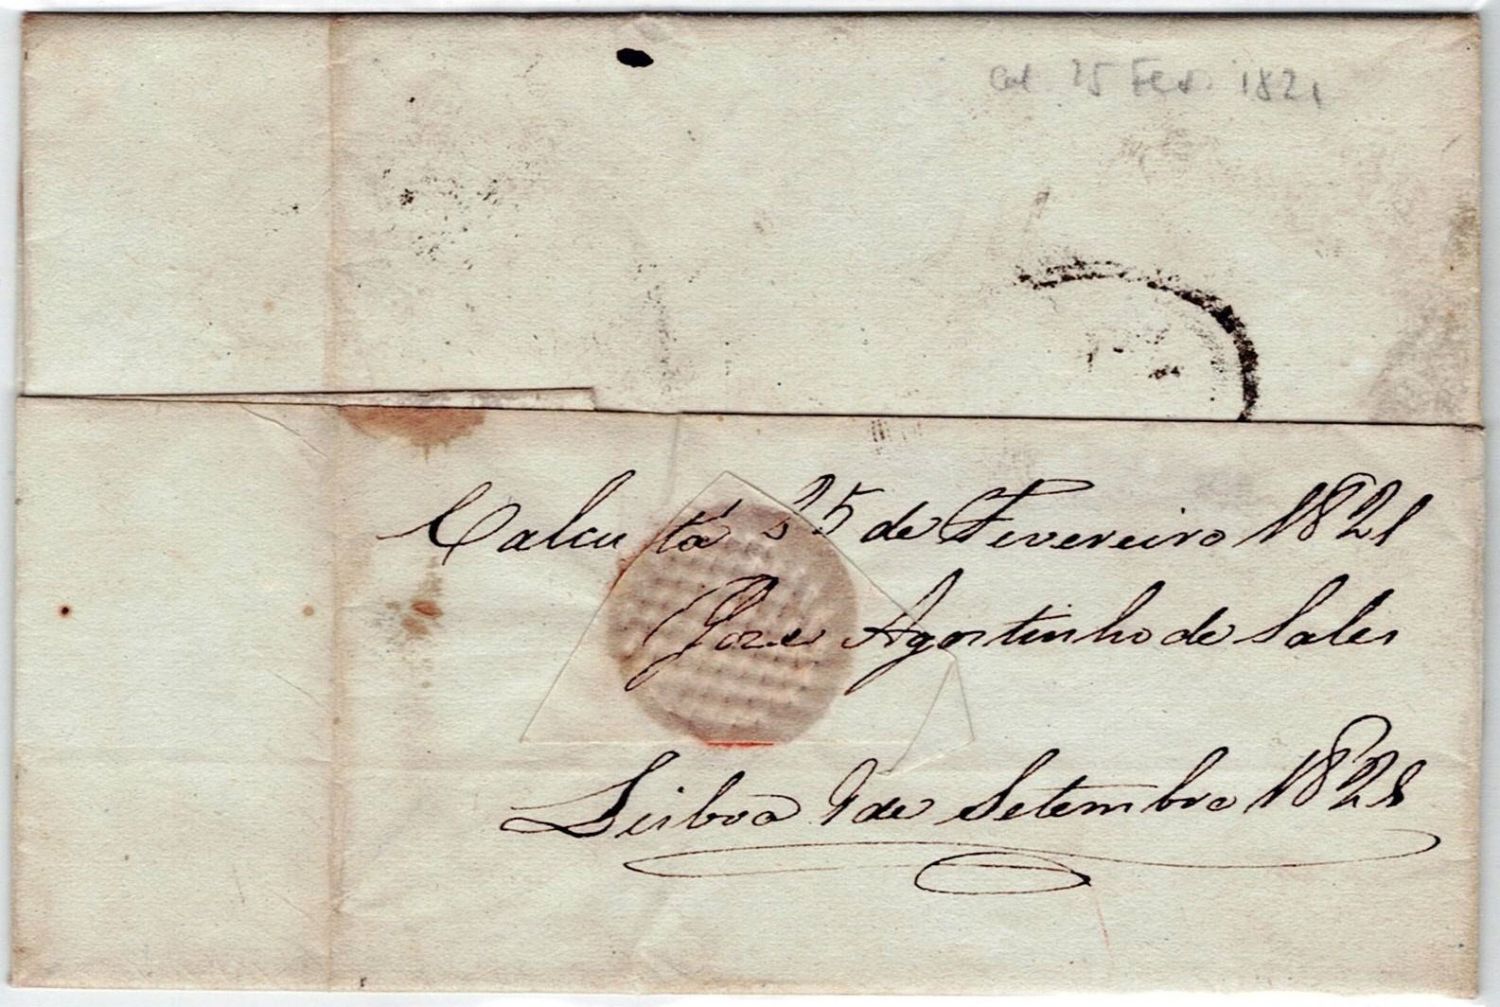 Cal. 25 Fev. 1821
Calcutá 25 de Fevereiro 1821
Joze Agostinho de Sales
Lisboa 9 de Setembro 1821